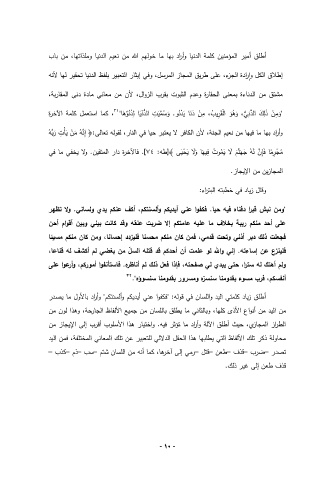 أطلق أمير المؤمنين كلمة الدنيا وأراد بها ما خولهم الله من نعيم الدنيا وملذاتها، من باب
إطلاق الكل وإرادة الجزء، على طريق المجاز المرسل، وفي إيثار التعبير بلفظ الدنيا تحقير لها لأنه
مشتق من الدناءة بمعنى الحقارة وعدم الثبوت بقرب الزوال، لأن من معاني مادة دنى المقاربة،
"ومن ذلك الدنيّ، وهو القريب، من دنا يدنو. وسُمِّيَت الدُّنْيَا لدُنُوِّها"، كما استعمل كلمة الآخرة
وأراد بها ما فيها من نعيم الجنة، لأن الكافر لا يعتبر حيا في النار، لقوله تعالى:﴿ إِنَّهُ مَنْ يَأْتِ رَبَّهُ
مُجْرِمًا فَإِنَّ لَهُ جَهَنَّمَ لَا يَمُوتُ فِيهَا وَلَا يَحْيَى ﴾[طه: ٧٤]. فالآخرة دار المتقين. ولا يخفى ما في
المجازين من الإيجاز.
وقال زياد في خطبته البتراء:
"ومن نبش قبرا دفناه فيه حيا. فكفوا عني أيديكم وألسنتكم، أكف عنكم يدي ولساني. ولا تظهر
على أحد منكم ريبة بخلاف ما عليه عامتكم إلا ضربت عنقه وقد كانت بيني وبين أقوام إحن
فجعلت ذلك دبر أذني وتحت قدمي، فمن كان منكم محسنا فليزدد إحسانا، ومن كان منكم مسيئا
فلينزع عن إساءته. إني والله لو علمت أن أحدكم قد قتله السل من بغضي لم أكشف له قناعا،
ولم أهتك له سترا، حتى يبدي لي صفحته، فإذا فعل ذلك لم أناظره. فاستأنفوا أموركم، وأرعوا على
أنفسكم، فرب مسوء بقدومنا سنسره ومسرور بقدومنا سنسوؤه".
أطلق زياد كلمتي اليد واللسان في قوله: "فكفوا عني أيديكم وألسنتكم" وأراد بالأول ما يصدر
من اليد من أنواع الأذى كلها، وبالثاني ما يطلق باللسان من جميع الألفاظ الجارحة، وهذا لون من
الطراز المجازي، حيث أطلق الآلة وأراد ما تؤثر فيه. واختيار هذا الأسلوب أقرب إلى الإيجاز من
محاولة ذكر تلك الألفاظ التي يطلبها هذا الحقل الدلالي للتعبير عن تلك المعاني المختلفة، فمن اليد
تصدر –ضرب –قذف –طعن –قتل –رمي إلى آخرها، كما أنه من اللسان شتم –سب –ذم –كذب –
قذف طعن إلى غير ذلك.
- ١٠ -